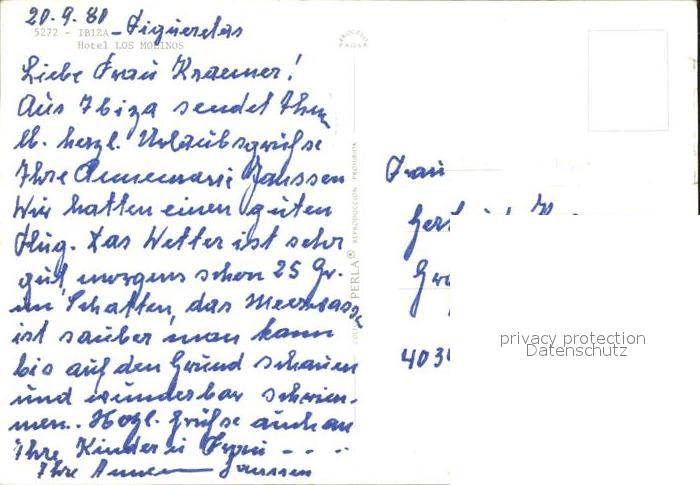 20.9.80
5272 - IBIZA - Figueretas
Hotel LOS MOLINOS
Liebe Frau Kraemer!
Aus Ibiza sendet Ihnen
lb. herzl. Urlaubsgrüße
Ihre Annemarie Janssen
Wir hatten einen guten
Flug. Das Wetter ist sehr
gut, morgens schon 25 Gr.
im Schatten, das Meerwasser
ist sauber man kann
bis auf den Grund schauen
und wunderbar schwim-
men.. Hrzl. Grüße auch an
Ihre Kinder u
Ihre Janssen
PERLA®
REPRODUCCION PROHIBIDA
Frau
403
privacy protection
Datenschutz